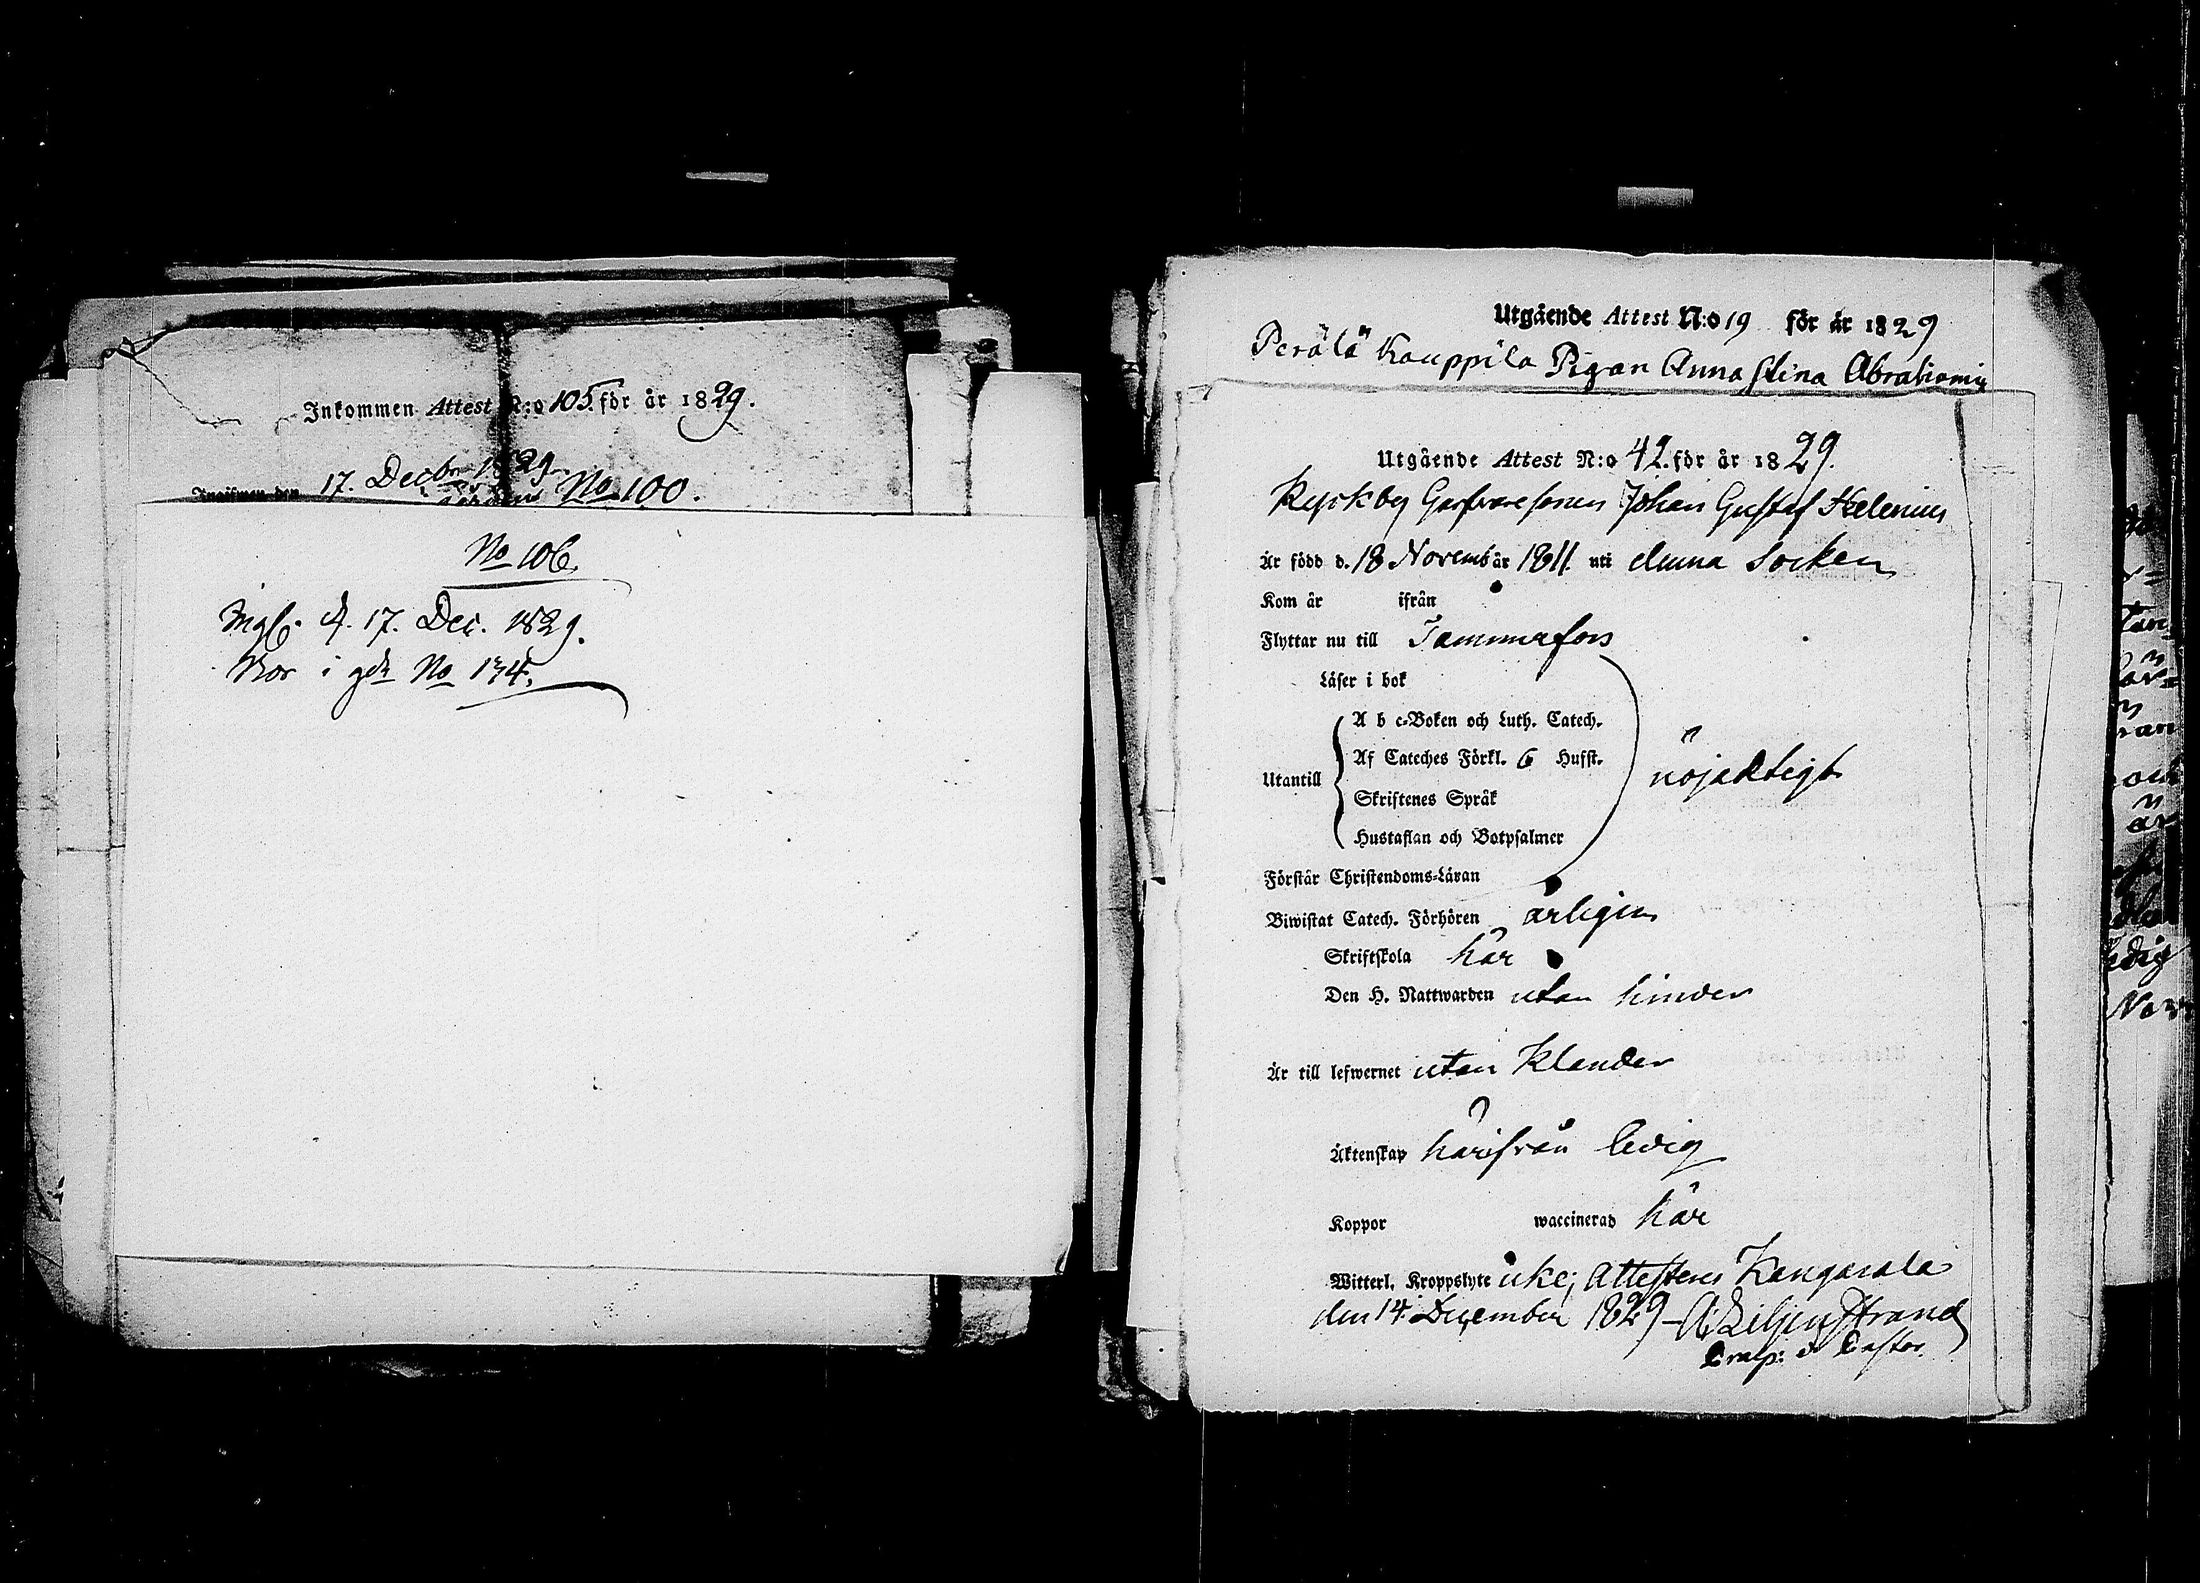 Inkommen Attest N:o 105. för år 1829.
17. Decbr 1829.
No 100.
No 106.
Ingf. d. 17. Dec. 1829.
Bor i gdn No 134.
Utgående Attest N:o 19 för år 1829
Perälä Kauppila Pigan Anna Stina Abrahams
Utgående Attest N:o 42. för år 1829.
Kyrkby Garfvaresonen Johan Gustaf Helenius
Är född d. 18 Novemb år 1811. uti denna Socken
Kom år ifrån
Flyttar nu till Tammerfors
Läser i bok
A b c-Boken och Luth. Catech.
Af Cateches Förkl. 6 Hufst.
Utantill nöjaktigt
Skriftenes Språk
Hustaflan och Botpsalmer
Förstår Christendoms-Läran
Biwistat Catech. Förhören årligen
Skriftskola här
Den H. Nattwarden utan hinder
Är till lefwernet utan klander
Äktenskap härifrån ledig
Koppor waccinerad här
Witterl. Kroppslyte icke; Attesteras Kangasala
den 14 December 1829 A: Liljenstrand